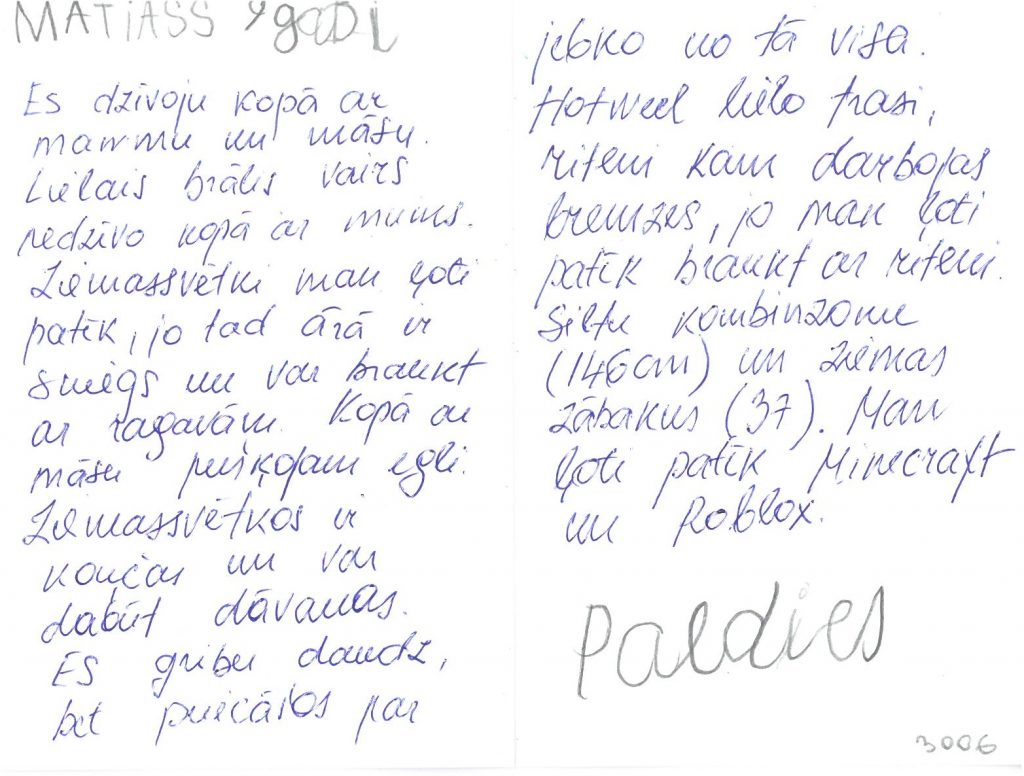 MATIASS 9 gaDi
Es dzīvoju kopā ar
mammu un māsu.
Lielais brālis vairs
nedzīvo kopā ar mums.
Ziemassvētki man ļoti
patīk, jo tad ārā ir
sniegs un var braukt
ar ragavām. Kopā ar
māsu pušķojam egli.
Ziemassvētkos ir
končas un var
dabūt dāvanas.
Es gribu daudz,
bet priecāšos par
jebko no tā visa.
Hotweel lielo trasi,
riteni kam darbojas
bremzes, jo man ļoti
patīk braukt ar riteni.
Siltu kombinzonu
(146cm) un ziemas
zābakus (37). Man
ļoti patīk Minecraft
un Roblox.
Paldies
3006